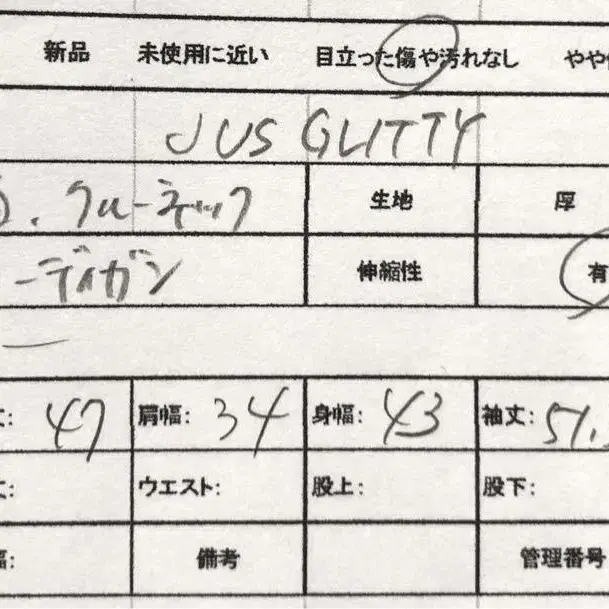 新品 未使用に近い 目立った傷や汚れなし やや
JUS GLITTY
. クルーネック 生地 厚
ーディガン 伸縮性 有
丈: 47 肩幅: 34 身幅: 43 袖丈: 51.
丈: ウエスト: 股上: 股下:
幅: 備考 管理番号